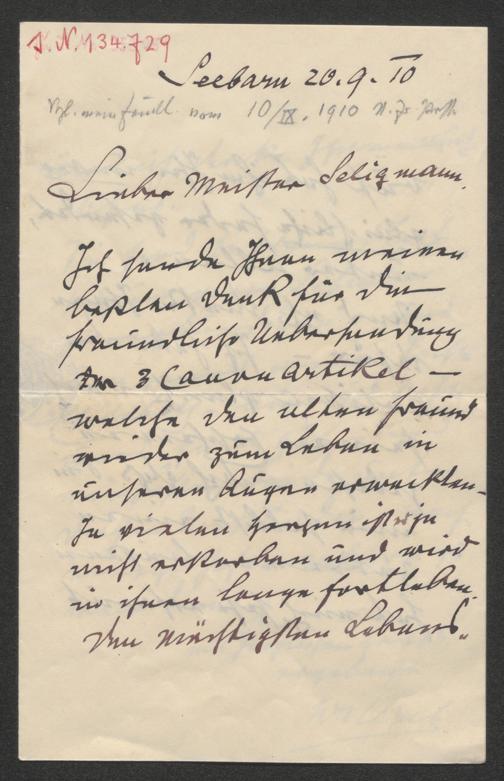 J. N. 134.729
Seebarn 20.9.10
vom 10/IX. 1910 N. Fr. Presse
Lieber Meister Seligmann.
Ich sende Ihnen meinen
beßten Dank für die
freundliche Uebersendung
der 3 Canon Artikel —
welche den alten Freund
wieder zum Leben in
unseren Augen erweckten.
In vielen Herzen ist er ja
nicht erstorben und wird
in ihnen lange fortleben.
Den mächtigsten Lebens„